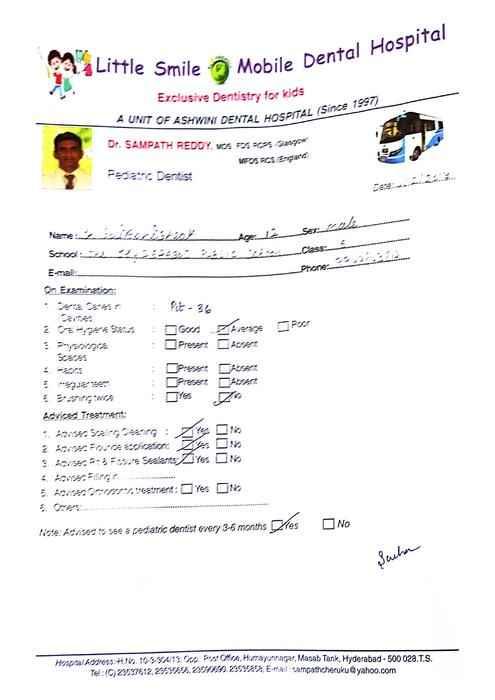 Little Smile Mobile Dental Hospital
Exclusive Dentistry for kids
A UNIT OF ASHWINI DENTAL HOSPITAL (Since 1997)
Dr. SAMPATH REDDY, MDS FDS RCPS (Glasgow)
MFDS RCS (England)
Pediatric Dentist
Date:
Name: Age: 12 Sex: male
School: PUBLIC Class:
E-mail: Phone:
On Examination:
1 Dental Caries in Cavities : Pit - 36
2. Oral Hygiene Status : Good Average Poor
3 Physiological Spaces : Present Absent
4 Habits : Present Absent
5 Irregular teeth : Present Absent
6 Brushing twice : Yes No
Adviced Treatment:
1. Advised Scaling Cleaning : Yes No
2. Advised Flouride application: Yes No
3. Advised Pit & Fissure Sealants: Yes No
4. Advised Filling in
5. Advised Orthodontic treatment : Yes No
6. Others:
Note: Advised to see a pediatric dentist every 3-6 months Yes No
Hospital Address: H.No. 10-3-304/13, Opp. Post Office, Humayunnagar, Masab Tank, Hyderabad - 500 028.T.S.
Tel : (C) 23537612, 23535656, 23590690, 23535858; E-mail : sampathcheruku@yahoo.com